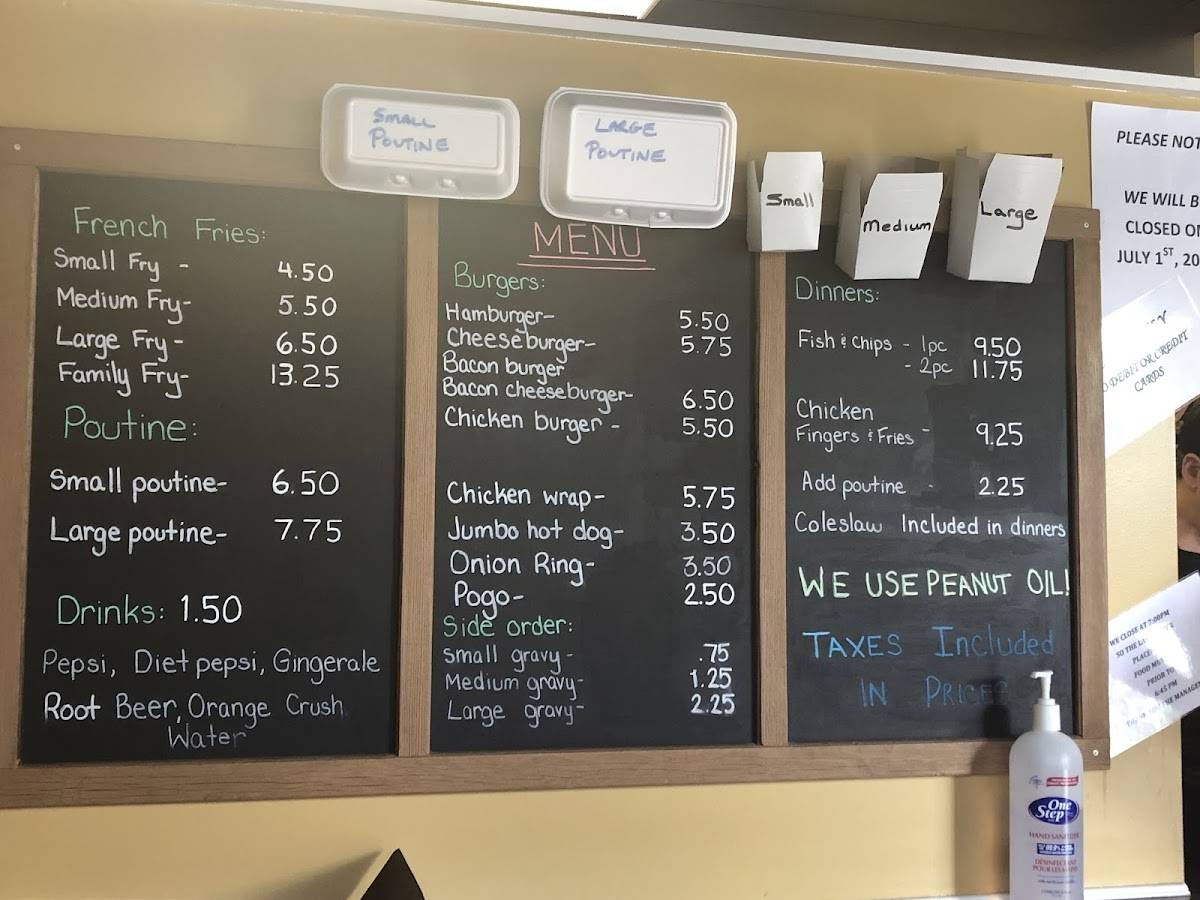 SMALL
POUTINE
LARGE
POUTINE
Small
Medium
Large
French Fries:
Small Fry - 4.50
Medium Fry- 5.50
Large Fry - 6.50
Family Fry- 13.25
Poutine:
Small poutine- 6.50
Large poutine- 7.75
Drinks: 1.50
Pepsi, Diet pepsi, Gingerale
Root Beer, Orange Crush
Water
MENU
Burgers:
Hamburger- 5.50
Cheeseburger- 5.75
Bacon burger
Bacon cheeseburger- 6.50
Chicken burger - 5.50
Chicken wrap- 5.75
Jumbo hot dog- 3.50
Onion Ring- 3.50
Pogo- 2.50
Side order:
Small gravy- .75
Medium gravy- 1.25
Large gravy- 2.25
Dinners:
Fish & Chips - 1pc 9.50
- 2pc 11.75
Chicken
Fingers & Fries - 9.25
Add poutine - 2.25
Coleslaw Included in dinners
WE USE PEANUT OIL!
TAXES Included
IN
PLEASE
WE WILL B
CLOSED
JULY 1ST, 20
DEBIT OR CREDIT
CARDS
WE CLOSE AT 7:00PM
SO THE
PLACE
FOOD
PRIOR TO
6:45 PM
THE
One
Step
HAND